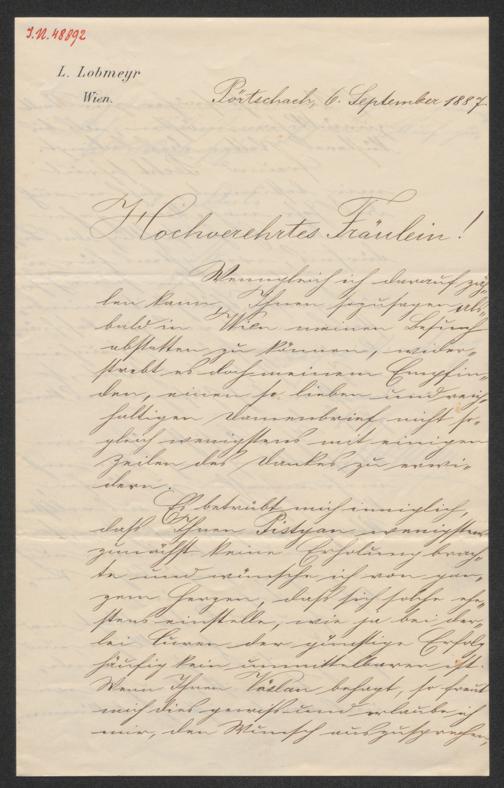 I.N. 48892
L. Lobmeyr
Wien.
Pörtschach, 6. September 1887.
Hochverehrtes Fräulein!
Wenngleich ich darauf zäh-
len kann, Ihnen sozusagen als-
bald in Wien meinen Besuch
abstatten zu können, wider-
strebt es doch meinem Empfin-
den, einen so lieben und reich-
haltigen Damenbrief nicht so-
gleich wenigstens mit einigen
Zeilen des Dankes zu erwi-
dern.
Es betrübt mich inniglich,
daß Ihnen Pistyan wenigstens
zunächst keine Erholung brach-
te und wünsche ich von gan-
zem Herzen, daß sich solche ehe-
stens einstelle, wie ja bei der-
lei Curen der günstige Erfolg
häufig kein unmittelbarer ist.
Wenn Ihnen Vöslau behagt, so freut
mich dies gewiss und erlaube ich
mir, den Wunsch auszusprechen,